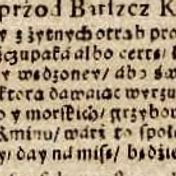 przod Barszcz K
y z żytnych otrąb pro
szczupaka albo certę/
y wędzoney/ abo św
ktora dawaiąc wyrzu
o y morskich/ grzybow
Kminu/ warz to społe
y/ day na misę/ będzie